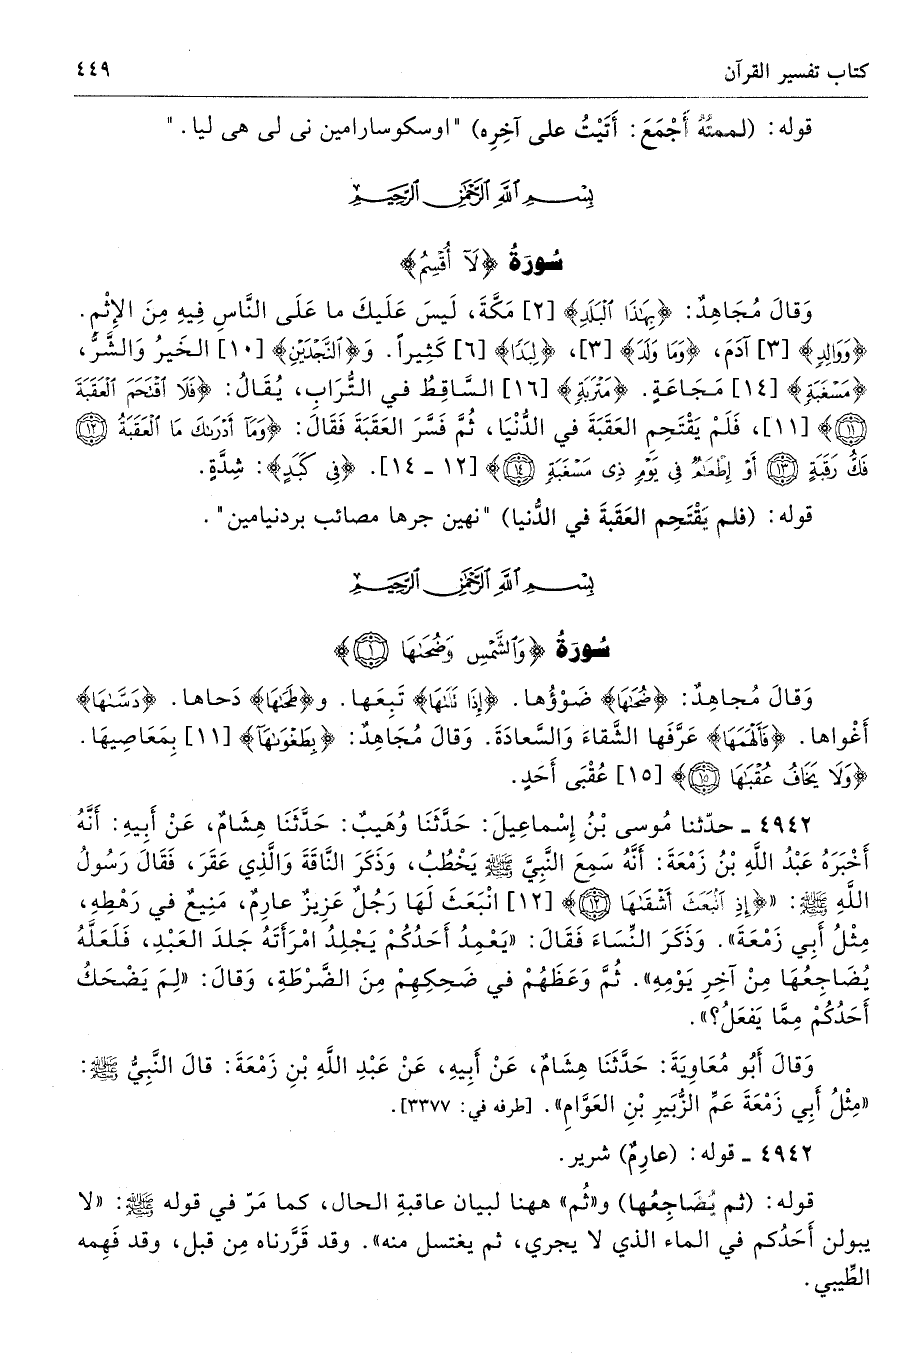 كتاب تفسير القرآن ٤٤٩
قوله: (لممتُهُ أَجْمَعَ: أَتَيْتُ على آخِرِه) "اوسكوسارامين نى لى هى ليا."
بِسْمِ ٱللَّهِ ٱلرَّحْمَٰنِ ٱلرَّحِيمِ
سُورَةُ ﴿لَآ أُقْسِمُ﴾
وَقالَ مُجَاهِدٌ: ﴿بِهَٰذَا ٱلْبَلَدِ﴾ [٢] مَكَّةَ، لَيسَ عَلَيكَ ما عَلَى النَّاسِ فِيهِ مِنَ الإِثْمِ.
﴿وَوَالِدٍ﴾ [٣] آدَمَ، ﴿وَمَا وَلَدَ﴾ [٣]، ﴿لُبَدًا﴾ [٦] كَثِيراً. وَ﴿ٱلنَّجْدَيْنِ﴾ [١٠] الخَيرُ وَالشَّرُّ،
﴿مَسْغَبَةٍ﴾ [١٤] مَجَاعَةٍ. ﴿مَتْرَبَةٍ﴾ [١٦] السَّاقِطُ في التُّرَابِ، يُقَالُ: ﴿فَلَا ٱقْتَحَمَ ٱلْعَقَبَةَ
﴿١١﴾﴾ [١١]، فَلَمْ يَقْتَحِمِ العَقَبَةَ في الدُّنْيَا، ثُمَّ فَسَّرَ العَقَبَةَ فَقَالَ: ﴿وَمَآ أَدْرَىٰكَ مَا ٱلْعَقَبَةُ ﴿١٢﴾
فَكُّ رَقَبَةٍ ﴿١٣﴾ أَوْ إِطْعَٰمٌ فِى يَوْمٍ ذِى مَسْغَبَةٍ ﴿١٤﴾﴾ [١٢ ـ ١٤]. ﴿فِى كَبَدٍ﴾: شِدَّةٍ.
قوله: (فلم يَقْتَحِمِ العَقَبَةَ في الدُّنيا) "نهين جرها مصائب بردنيامين".
بِسْمِ ٱللَّهِ ٱلرَّحْمَٰنِ ٱلرَّحِيمِ
سُورَةُ ﴿وَٱلشَّمْسِ وَضُحَىٰهَا ﴿١﴾﴾
وَقالَ مُجاهِدٌ: ﴿ضُحَىٰهَا﴾ ضَوْؤُها. ﴿إِذَا تَلَىٰهَا﴾ تَبِعَها. و﴿طَحَىٰهَا﴾ دَحاها. ﴿دَسَّىٰهَا﴾
أَغْواها. ﴿فَأَلْهَمَهَا﴾ عَرَّفَها الشَّقاءَ وَالسَّعادَةَ. وَقالَ مُجَاهِدٌ: ﴿بِطَغْوَىٰهَآ﴾ [١١] بِمَعَاصِيهَا.
﴿وَلَا يَخَافُ عُقْبَٰهَا ﴿١٥﴾﴾ [١٥] عُقْبَى أَحَدٍ.
٤٩٤٢ ـ حدّثنا مُوسى بْنُ إِسْماعِيلَ: حَدَّثَنَا وُهَيبٌ: حَدَّثَنَا هِشَامٌ، عَنْ أَبِيهِ: أَنَّهُ
أَخْبَرَهُ عَبْدُ اللَّهِ بْنُ زَمْعَةَ: أَنَّهُ سَمِعَ النَّبِيَّ ﷺ يَخْطُبُ، وَذَكَرَ النَّاقَةَ وَالَّذِي عَقَرَ، فَقَالَ رَسُولُ
اللَّهِ ﷺ: «﴿إِذِ ٱنۢبَعَثَ أَشْقَىٰهَا ﴿١٢﴾﴾ [١٢] انْبَعَثَ لَهَا رَجُلٌ عَزِيزٌ عارِمٌ، مَنِيعٌ في رَهْطِهِ،
مِثْلُ أَبِي زَمْعَةَ». وَذَكَرَ النِّسَاءَ فَقَالَ: «يَعْمِدُ أَحَدُكُمْ يَجْلِدُ امْرَأَتَهُ جَلدَ العَبْدِ، فَلَعَلَّهُ
يُضَاجِعُهَا مِنْ آخِرِ يَوْمِهِ». ثُمَّ وَعَظَهُمْ في ضَحِكِهِمْ مِنَ الضَّرْطَةِ، وَقالَ: «لِمَ يَضْحَكُ
أَحَدُكُمْ مِمَّا يَفعَلُ؟».
وَقالَ أَبُو مُعَاوِيَةَ: حَدَّثَنَا هِشَامٌ، عَنْ أَبِيهِ، عَنْ عَبْدِ اللَّهِ بْنِ زَمْعَةَ: قالَ النَّبِيُّ ﷺ:
«مِثْلُ أَبِي زَمْعَةَ عَمِّ الزُّبَيرِ بْنِ العَوَّامِ». [طرفه في: ٣٣٧٧].
٤٩٤٢ ـ قوله: (عارِمٌ) شرير.
قوله: (ثم يُضَاجِعُها) و«ثُم» ههنا لبيان عاقبةِ الحال، كما مَرّ في قوله ﷺ: «لا
يبولن أَحَدُكم في الماء الذي لا يجري، ثم يغتسل منه». وقد قَرَّرناه مِن قبل، وقد فَهِمه
الطِّيبي.